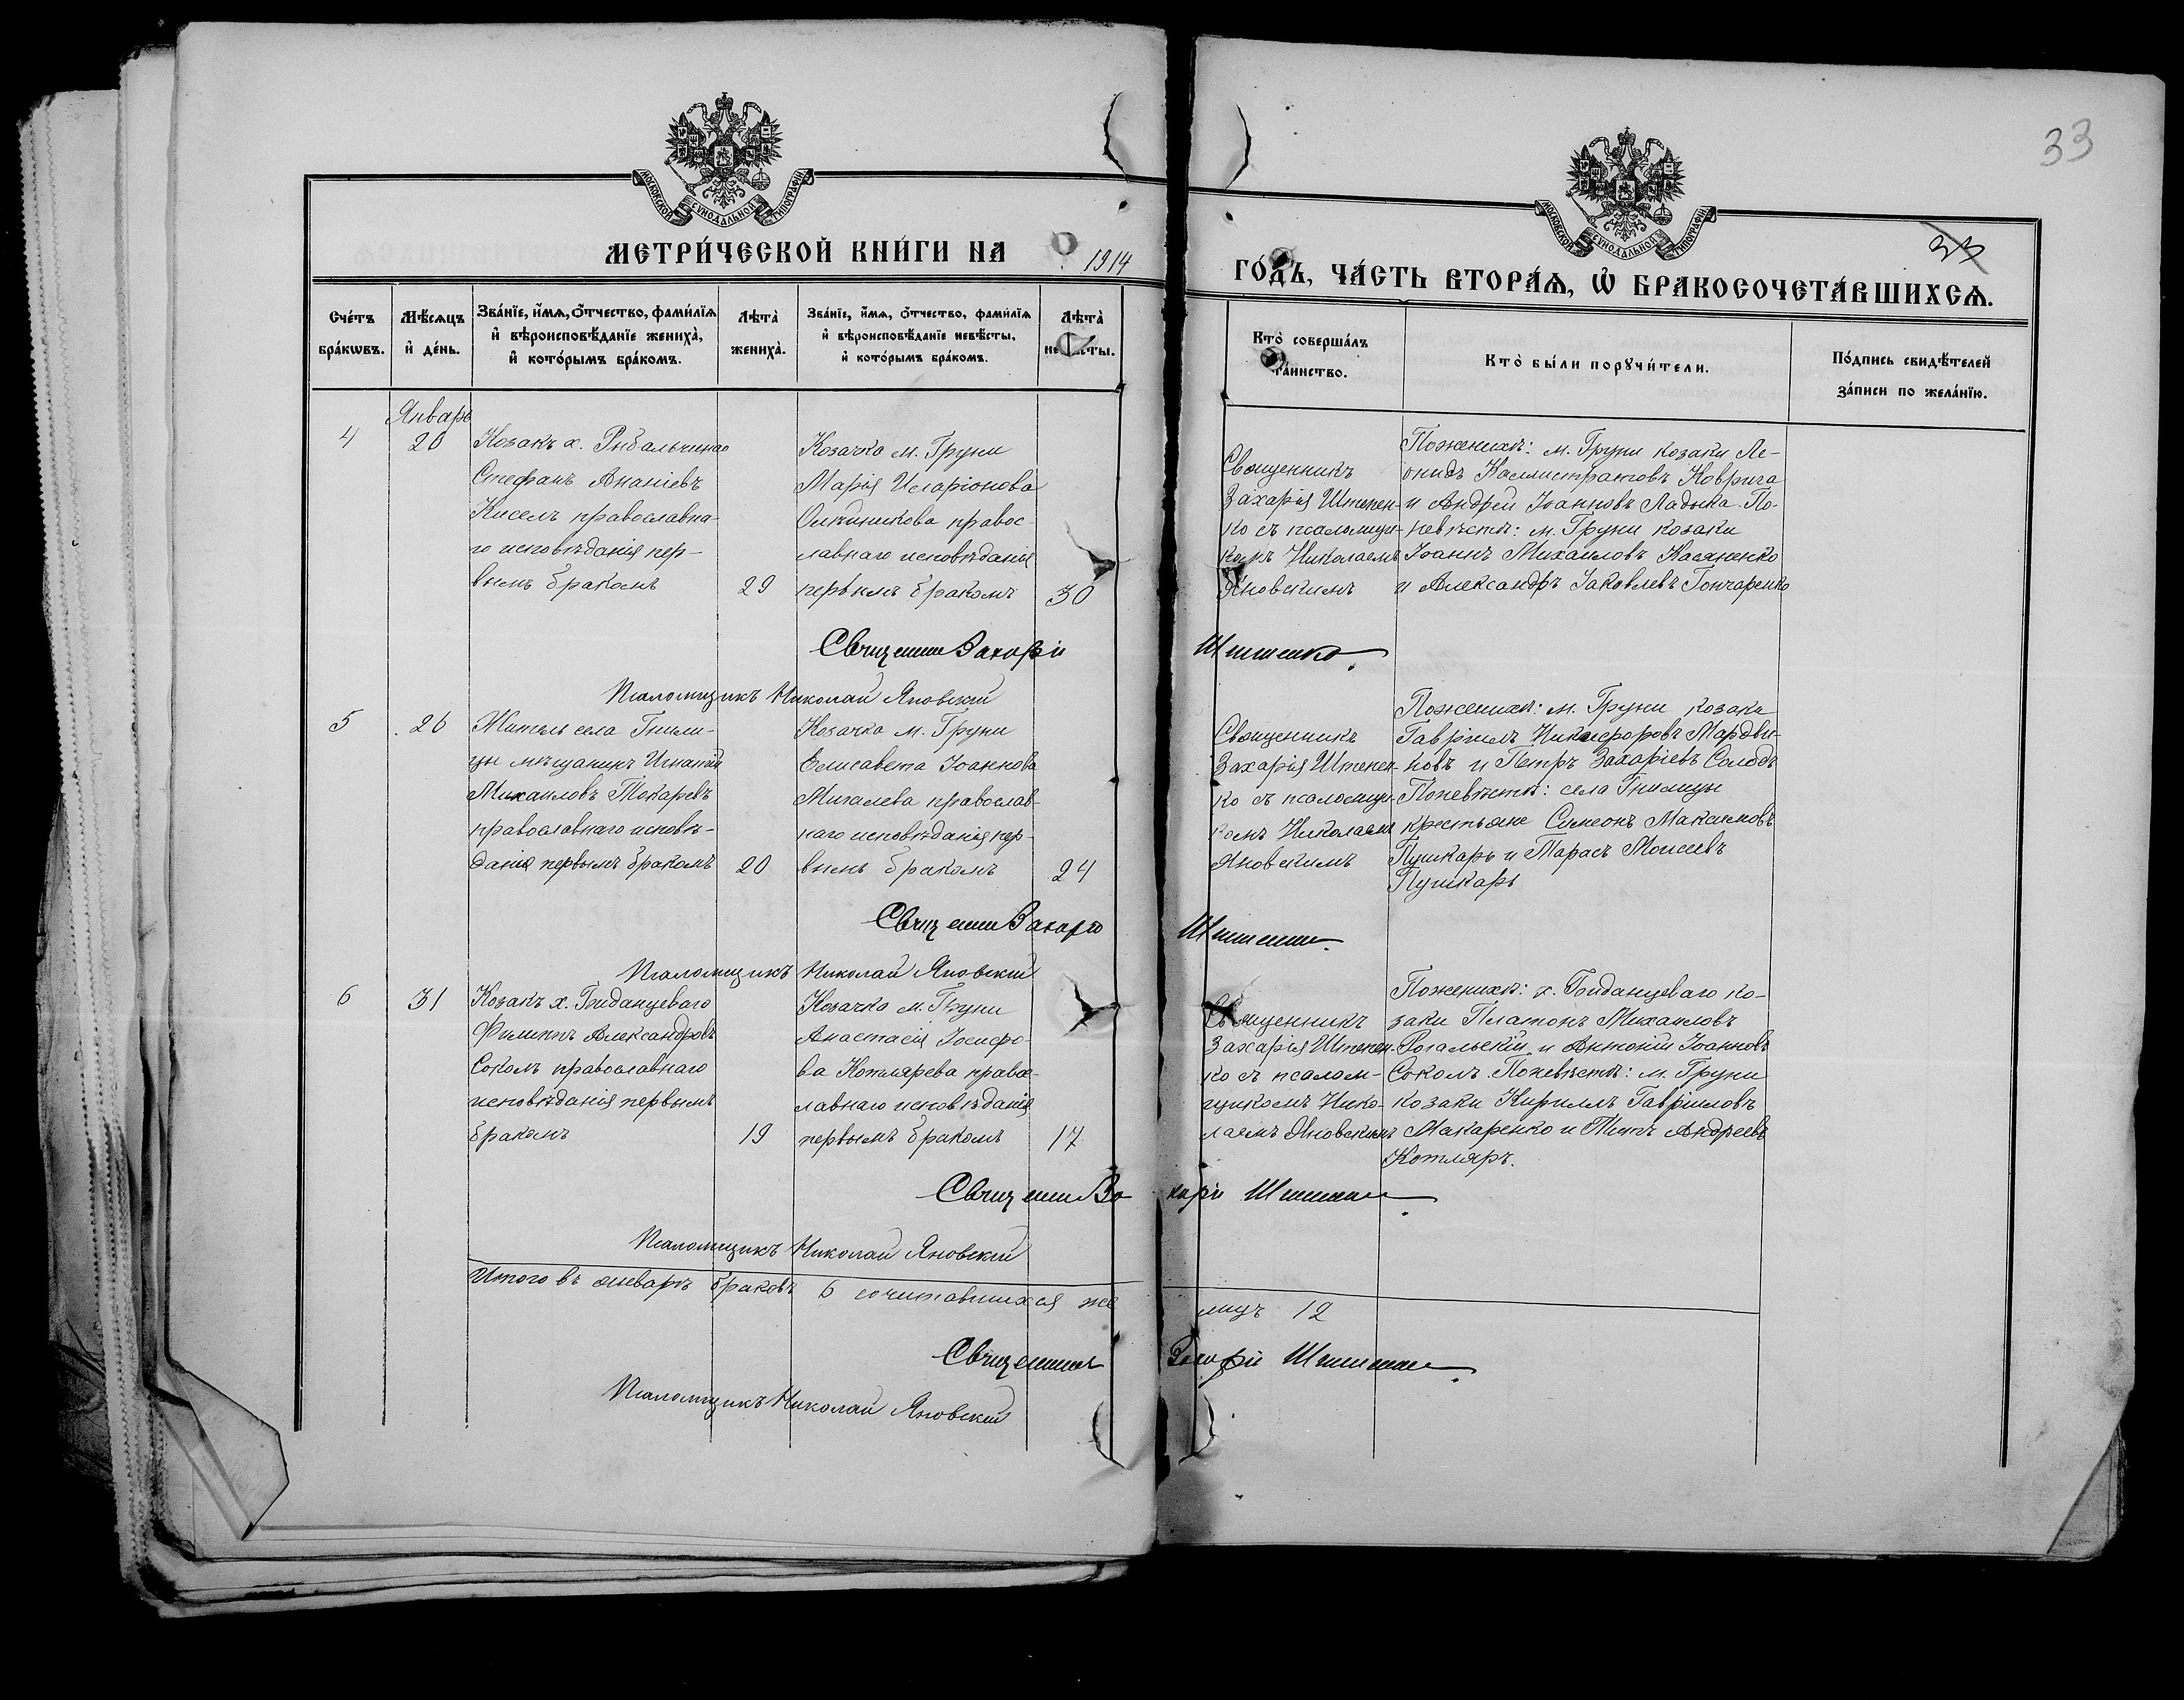 33
МОСКОВСКОЙ СУНОДАЛЬНОЙ ТИПОГРАФІИ
МОСКОВСКОЙ СУНОДАЛЬНОЙ ТИПОГРАФІИ
33
МЕТРИ́ЧЕСКОЙ КНИ́ГИ НА 1914
ГО́ДЪ, ЧА́СТЬ ВТОРА́Ѧ, Ѡ҆ БРАКОСОЧЕТА́ВШИХСѦ.
Сче́тъ
бра́кѡвъ.
Мѣ́сѧцъ
и҆ де́нь.
Зва́нїе, и҆́мѧ, ѻ҆́тчество, фами́лїѧ
и҆ вѣроисповѣ́данїе жениха̀,
и҆ кото́рымъ бра́комъ.
Лѣта̀
жениха̀.
Зва́нїе, и҆́мѧ, ѻ҆́тчество, фами́лїѧ
и҆ вѣроисповѣ́данїе невѣ́сты,
и҆ кото́рымъ бра́комъ.
Лѣта̀
невѣ́сты.
Кто̀ соверша́лъ
та́инство.
Кто̀ бы́ли порꙋчи́тели.
По́дпись свидѣ́телей
за́писи по жела́нїю.
Январь
4
20
Козакъ х. Рыбальчина
Стефанъ Ананіевъ
Кисель православна-
го исповѣданія пер-
вымъ бракомъ
29
Козачка м. Груни
Марія Иларіонова
правос-
лавнаго исповѣданія
первымъ бракомъ
30
Священникъ
Захарія Штепен-
ко съ псаломщи-
комъ Николаемъ
Яновскимъ
Пожениху: м. Груни козаки Ле-
онидъ Каллистратовъ Коврига
и Андрей Іоанновъ Ладыка. По-
невѣстѣ: м. Груни козаки
Іоаннъ Михаиловъ Касяненко
и Александръ Іаковлевъ Гончаренко
Священникъ Захарій Штепенко
Псаломщикъ Николай Яновскій
5
26
Житель села Гнили-
цы мѣщанинъ Игнатій
Михаиловъ Токаревъ
православнаго исповѣ-
данія первымъ бракомъ
20
Козачка м. Груни
Елисавета Іоаннова
Мигалева православ-
наго исповѣданія пер-
вымъ бракомъ
24
Священникъ
Захарія Штепен-
ко съ псаломщи-
комъ Николаемъ
Яновскимъ
Пожениху: м. Груни козаки
Гавріилъ Никифоровъ Мардви-
новъ и Петръ Захаріевъ Солодъ
Поневѣстѣ: села Гнилицы
крестьяне Симеонъ Максимовъ
Пушкарь и Тарасъ Моисеевъ
Пушкарь
Священникъ Захарій Штепенко
Псаломщикъ Николай Яновскій
6
31
Козакъ х.
Филиппъ Александровъ
Соколъ православнаго
исповѣданія первымъ
бракомъ
19
Козачка м. Груни
Анастасія Іосифо-
ва Котлярева правос-
лавнаго исповѣданія
первымъ бракомъ
17
Священникъ
Захарія Штепен-
ко съ псалом-
щикомъ Нико-
лаемъ Яновскимъ
Пожениху: х. ко-
заки Платонъ Михаиловъ
Рогальскій и Антоній Іоанновъ
Соколъ. Поневѣстѣ: м. Груни
козаки Кириллъ Гавріиловъ
Макаренко и Титъ Андреевъ
Котляръ.
Священникъ Захарій Штепенко
Псаломщикъ Николай Яновскій
Итого въ январѣ браковъ 6 сочитавшихся же лицъ 12
Священникъ Захарій Штепенко
Псаломщикъ Николай Яновскій